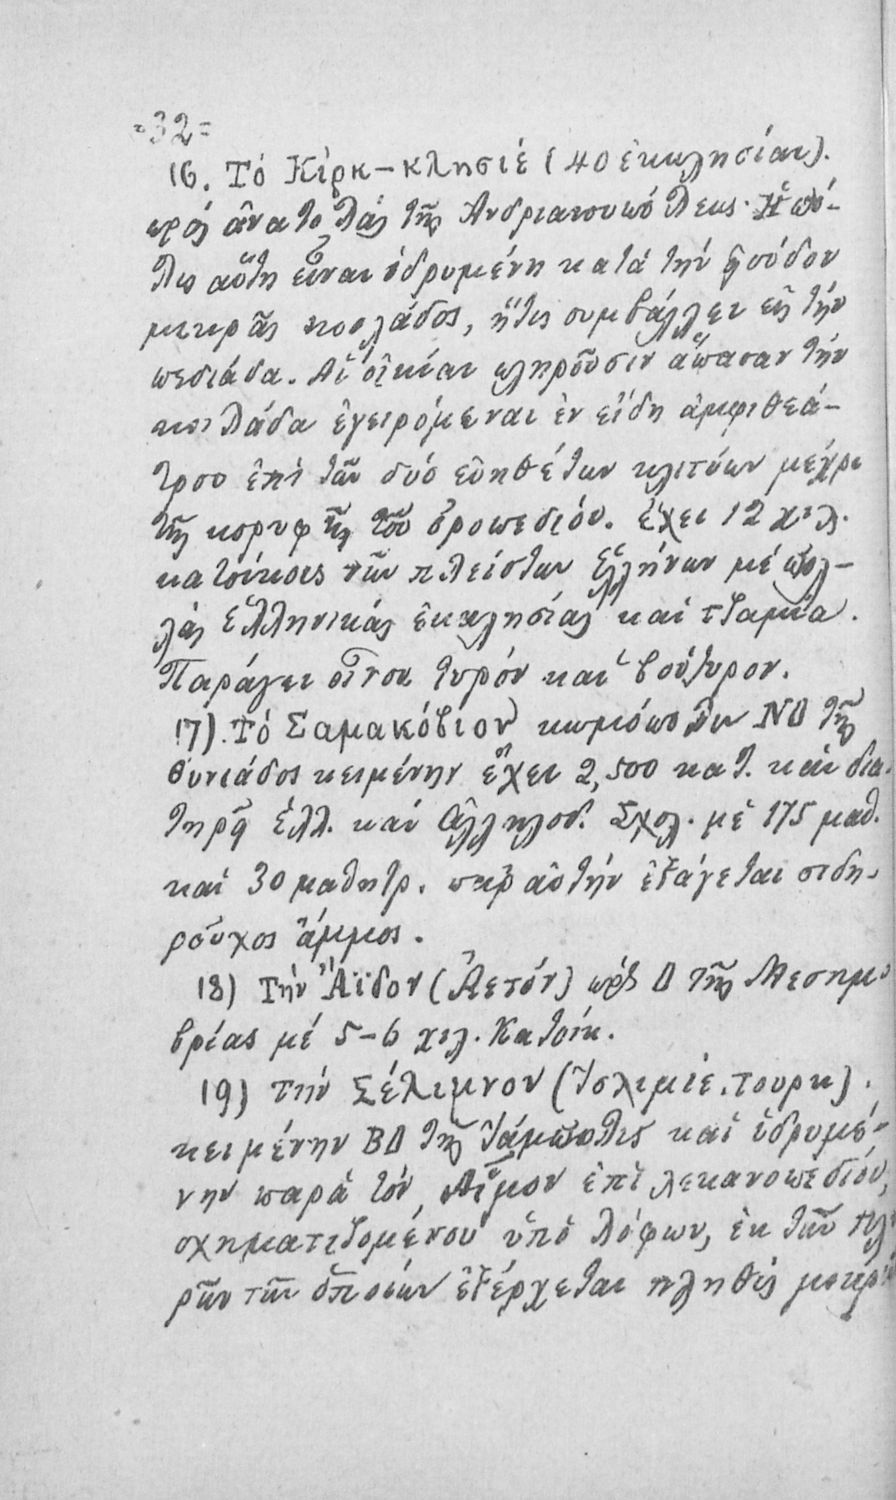 =32=
16. Τό Κίρκ-κλησιέ (40 ἐκκλησίαι).
πρός ἀνατολάς τῆς Ἀνδριανουπόλεως. Ἡ πό-
λις αὕτη εἶναι ἱδρυμένη κατά τήν εἴσοδον
μικρᾶς κοιλάδος, ἥτις συμβάλλει εἰς τήν
πεδιάδα. Αἱ οἰκίαι πληροῦσιν ἅπασαν τήν
κοιλάδα ἐγειρόμεναι ἐν εἴδη ἀμφιθεά-
τρου ἐπί τῶν δυό εὐηθέτων κλιτύων μέχρι
τῆς κορυφῆς τοῦ ὀροπεδίου. ἔχει 12 χιλ.
κατοίκους τῶν πλείστων Ἑλλήνων μέ πολ-
λάς ἑλληνικάς ἐκκλησίας καί τζαμία.
Παράγει οἶνον τυρόν καί βούτυρον.
17). Τό Σαμακόβιον κωμόπολιν ΝΔ τῆς
Θυνιάδος κειμένην ἔχει 2,500 κατ. καί δια-
τηρῇ ἑλλ. καί ἀλληλοδ. Σχολ. μέ 175 μαθ.
καί 30 μαθητρ. παρ αὐτήν ἐξάγεται σιδη-
ροῦχος ἄμμος.
18) Τήν Ἄϊδον (Ἀετόν) πρός Δ τῆς Μεσημ-
βρίας μέ 5-6 χιλ. Κατοίκ.
19) τήν Σέλιμνον (Ἰσλιμιέ. τουρκ).
κειμένην ΒΔ τῆς Ἰάμπολις καί ἱδρυμέ-
νην παρά τόν Αἷμον ἐπί λεκανοπεδίου,
σχηματιζομένου ὑπό λόφων, ἐκ τῶν πλευ
ρῶν τῶν ὁποίων ἐξέρχεται πληθύς μικρῶν